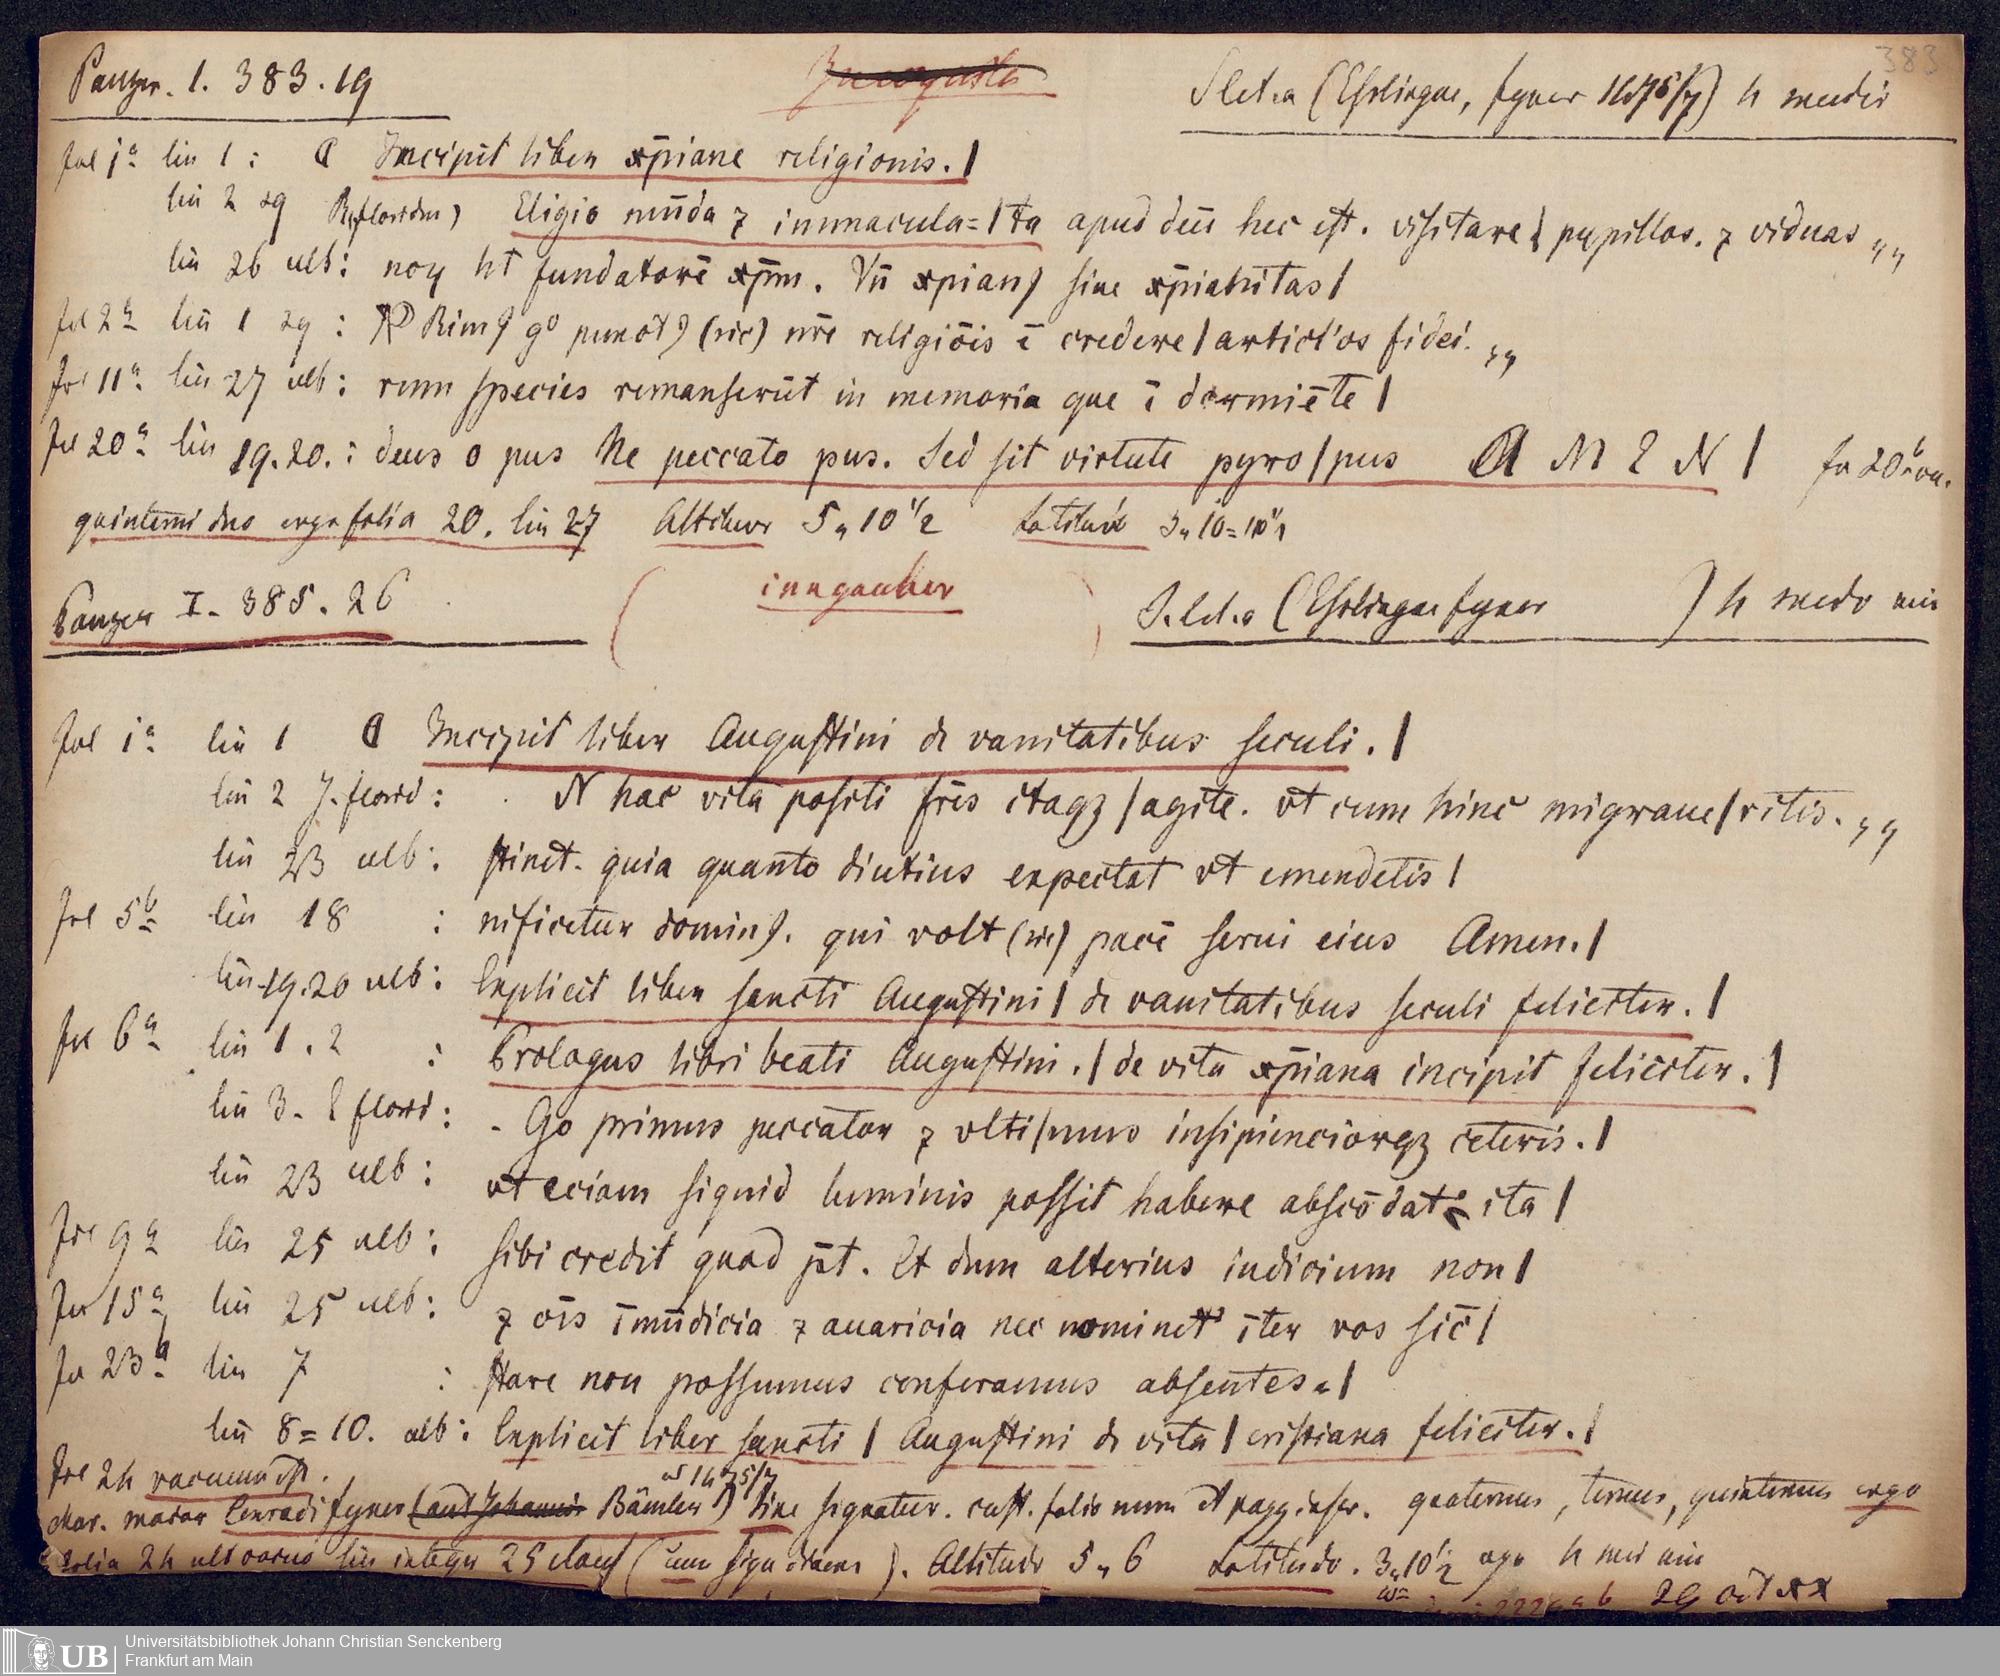 Panzer. 1. 383. 19
383
S. l. et. a (Esslingae, fyner 1475/7) 4 medio
fol 1a lin 1: Incipit liber xp̄iane religionis. |
lin 2 sq R, floridum) Eligio mūda ⁊ inmacula= | ta apud deū hec est. visitare | pupillos. ⁊ viduas „
lin 26 ult: noꝫ ht̄ fundatorē xp̄m. Vn̄ xpianꝰ sine xp̄ianitas |
fol 2a lin 1 sq: Rimꝰ g° punctꝰ (sic) nr̄e religiōis ē credere | articl'os fidei. „
fol 11a lin 27 ult: rum species remanserūt in memoria que ī dormiēte |
fol 20a lin 19. 20.: deus o pus Ne peccato pus. Sed sit virtute pyro | pus A M E N | fol 20b vac.
quinterni duo ergo folia 20. lin 27 Altitudo 5„ 10 1/2 Latitudo 3„ 10=
Panzer I. 385. 26
S. l. et. a (Esslingae fyner ) 4 medio min
fol 1a lin 1 Incipit liber Augustini de vanitatibus seculi. |
lin 2 J. florid: N hac vita positi fr̄es itaqꝫ | agite. vt cum hinc migraue | ritis. „
lin 23 ult: stinet. quia quanto diutius expectat vt emendetis |
fol 5b lin 18 : nificetur dominꝰ. qui volt (sic) pacē serui eius Amen. |
lin 19. 20 ult: Explicit liber sancti Augustini | de vanitatibus seculi feliciter. |
fol 6a lin 1. 2 : Prologus libri beati Augustini. | de vita xp̄iana incipit feliciter. |
lin 3. E florid: Go primus peccator ⁊ vlti | mus insipienciorqꝫ ceteris. |
lin 23 ult: vt eciam siquid luminis possit habere abscōdat ita |
fol 9a lin 25 ult: sibi credit quod p̄t. Et dum alterius iudicium non |
fol 15a lin 25 ult: ⁊ oīs īmūdicia ⁊ auaricia nec nominet' īter vos sic̄ |
fol 23a lin 7 : stare non possumus conferamus absentes. |
lin 8=10. ult: Explicit liber sancti | Augustini de vita | cristiana feliciter. |
fol 24 vacuum est.
char. maior Conradi fyner (aut Johannis Bämler) Sine signatur. cust. folio num et pagg inscr. quaternus, ternus, quinternus ergo
folia 24 ult vacuo lin integr 25 Altitudo 5„ 6 Latitudo. 3„ 10 1/2 ergo 4 min
29 oct
UB Universitätsbibliothek Johann Christian Senckenberg
Frankfurt am Main